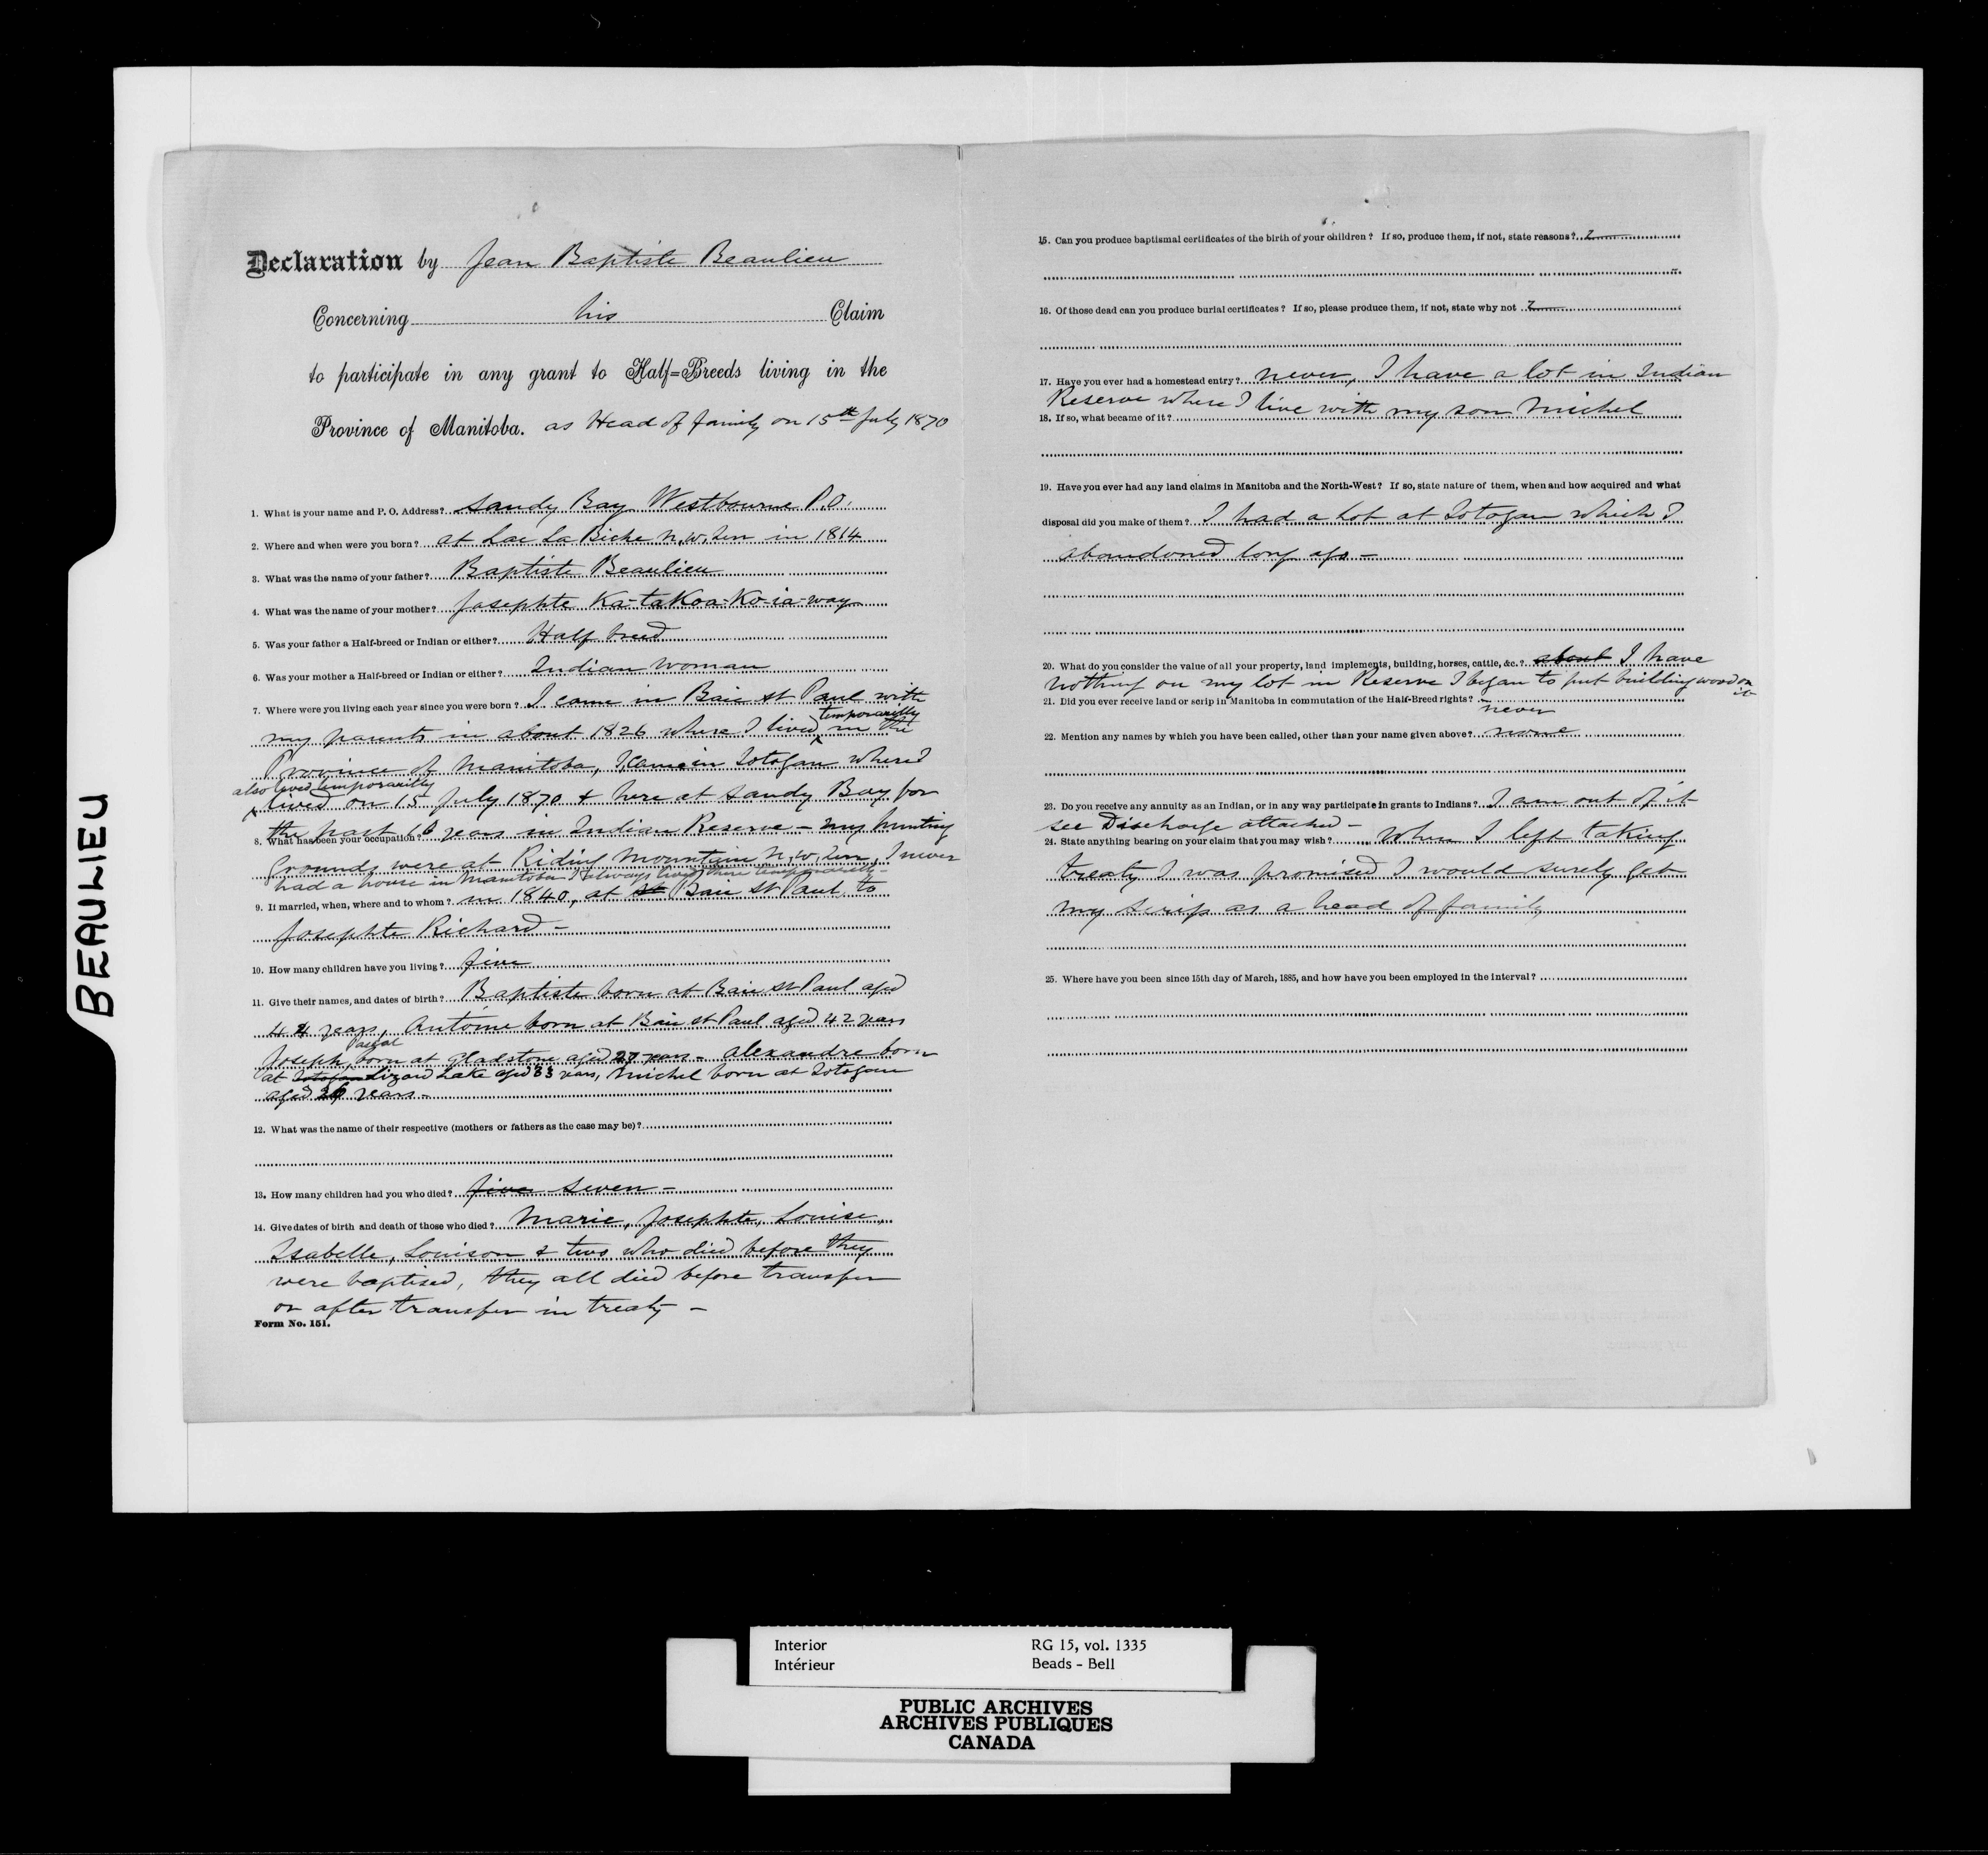 BEAULIEU
Declaration by Jean Baptiste Beaulieu
Concerning his Claim
to participate in any grant to Half=Breeds living in the
Province of Manitoba. as Head of family on 15th July 1870
1. What is your name and P. O. Address? Sandy Bay Westbourne P.O.
2. Where and when were you born? at Lac La Biche N.W. Ter in 1814
3. What was the name of your father? Baptiste Beaulieu
4. What was the name of your mother? Josephte Ka-takoa-Ko-ia-way
5. Was your father a Half-breed or Indian or either? Half breed
6. Was your mother a Half-breed or Indian or either? Indian Woman
7. Where were you living each year since you were born? I came in Baie St Paul with
my parents in about 1826 where I lived temporarilly in the
Province of Manitoba, I came in Totogan where I
also lived temporarilly
lived on 15 July 1870 & here at Sandy Bay for
the past years in Indian Reserve - my hunting
8. What has been your occupation?
Grounds were at Riding Mountain N.W. Ter, I never
had a house in Manitoba I always lived there temporarilly -
9. If married, when, where and to whom? in 1840, at St Baie St Paul to
Josephte Richard -
10. How many children have you living? five
11. Give their names, and dates of birth? Baptiste born at Baie St Paul aged
44 years, Antoine born at Baie St Paul aged 42 years
Pascal
Joseph born at Gladstone aged 27 years - Alexandre born
at Totogan Lizard Lake aged 33 years, Michel born at Totogan
aged years -
12. What was the name of their respective (mothers or fathers as the case may be)?
13. How many children had you who died? five seven -
14. Give dates of birth and death of those who died? Marie, Josephte, Louise,
Isabelle, Louison & two who died before they
were baptised, they all died before transfer
or after transfer in treaty -
Form No. 151.
15. Can you produce baptismal certificates of the birth of your children? If so, produce them, if not, state reasons?
16. Of those dead can you produce burial certificates? If so, please produce them, if not, state why not
17. Have you ever had a homestead entry? never, I have a lot in Indian
Reserve where I live with my son Michel
18. If so, what became of it?
19. Have you ever had any land claims in Manitoba and the North-West? If so, state nature of them, when and how acquired and what
disposal did you make of them? I had a Lot at Totogan which I
abandoned long ago -
20. What do you consider the value of all your property, land implements, building, horses, cattle, &c.? about I have
nothing on my lot in Reserve I began to put building wood on
it
21. Did you ever receive land or scrip in Manitoba in commutation of the Half-Breed rights?
never
22. Mention any names by which you have been called, other than your name given above? none
23. Do you receive any annuity as an Indian, or in any way participate in grants to Indians? I am out of it
see Discharge attached -
24. State anything bearing on your claim that you may wish? When I left taking
treaty I was promised I would surely get
my scrip as a head of family
25. Where have you been since 15th day of March, 1885, and how have you been employed in the interval?
Interior RG 15, vol. 1335
Intérieur Beads - Bell
PUBLIC ARCHIVES
ARCHIVES PUBLIQUES
CANADA